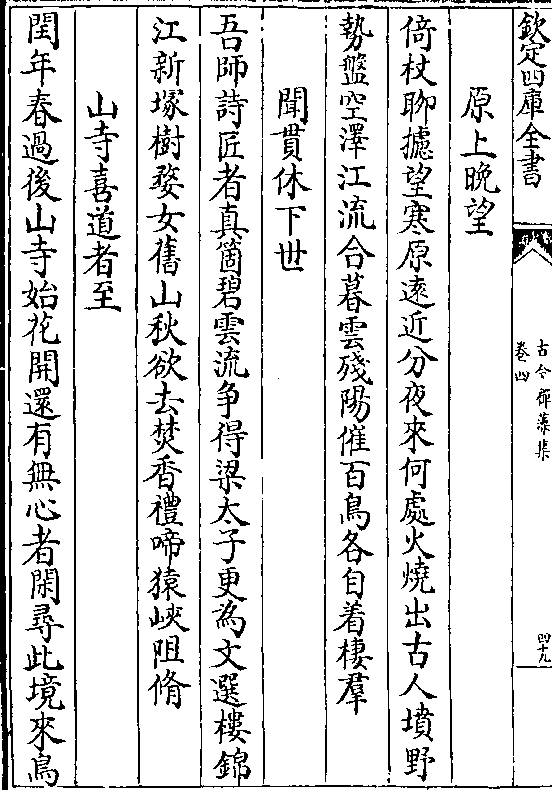 欽定四庫全書
古今禪藻集
卷四
四十九
原上晚望
倚杖聊攄望寒原遠近分夜來何處火燒出古人墳野
勢盤空澤江流合暮雲殘陽催百鳥各自着棲羣
聞貫休下世
吾師詩匠者真箇碧雲流争得梁太子更為文選樓錦
江新塚樹婺女舊山秋欲去焚香禮啼猿峽阻脩
山寺喜道者至
閏年春過後山寺始花開還有無心者閑尋此境來鳥